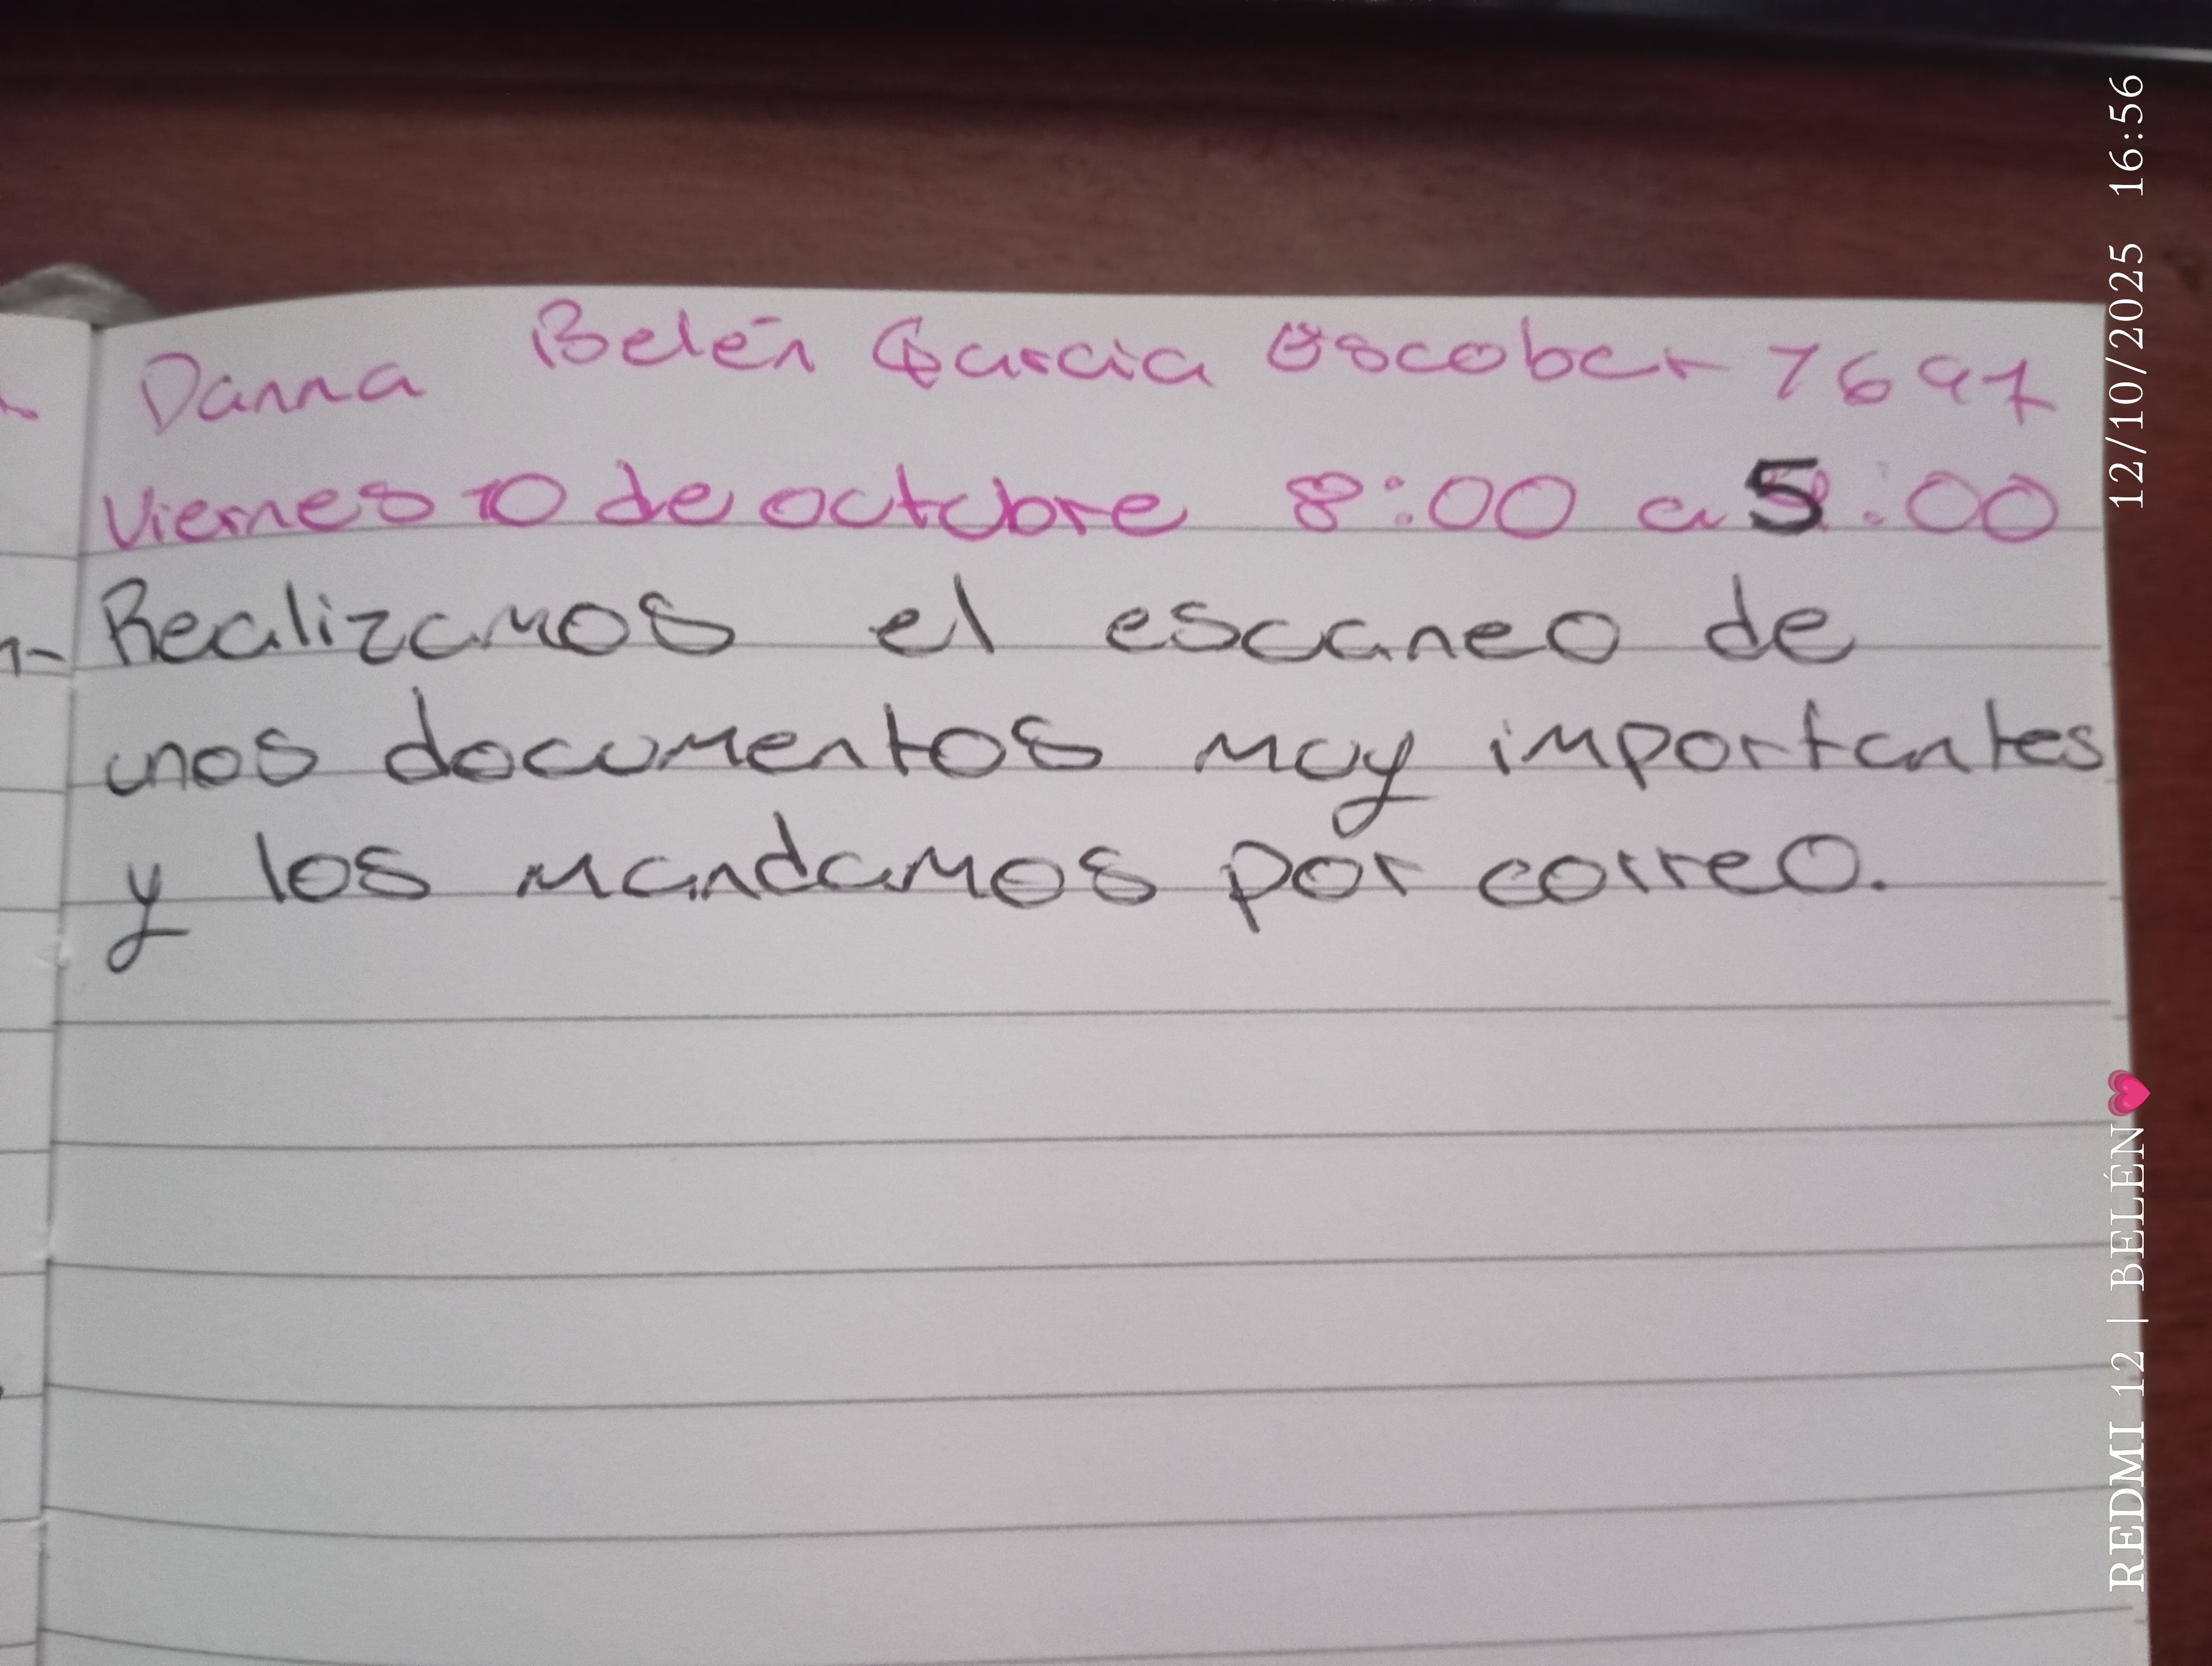 Danna Belén Garcia Escobar 7697
Viernes 10 de octubre 8:00 a 5:00
Realizamos el escaneo de
unos documentos muy importantes
y los mandamos por correo.
12/10/2025 16:56
REDMI 12 | BELÉN💗